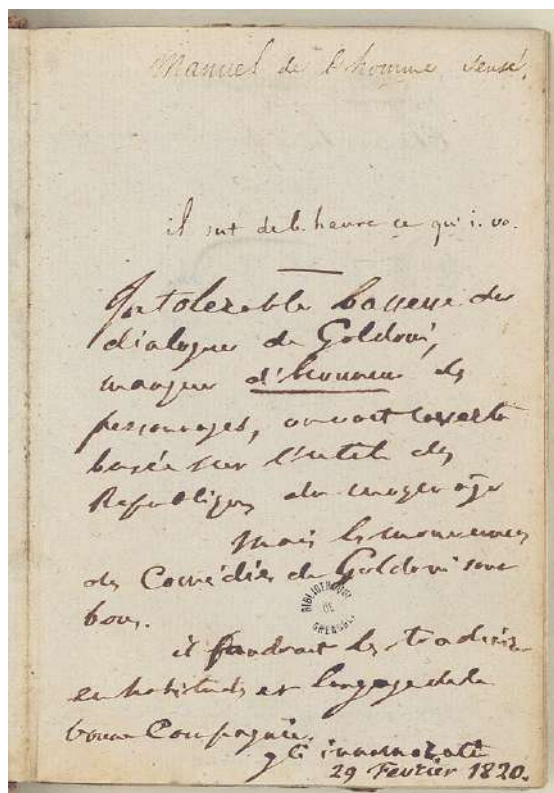 Manuel de l'homme sensé.
il sut de b. heure ce qu'i. vo.
Intolerable bassesse des
dialogues de Goldoni,
manque d'honneur des
personnages,
basée sur l'utile des
Republiques du moyen age
Mais les mouvemens
des Comédies de Goldoni sont
bons.
il faudrait les traduire
en habitudes et langage de la
bonne Compagnie.
gli innamorati
29 Fevrier 1820.
BIBLIOTHEQUE
DE
GRENOBLE